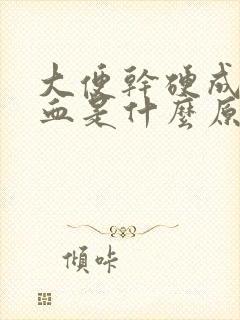 大便幹硬成
血是什麼原
傾咔